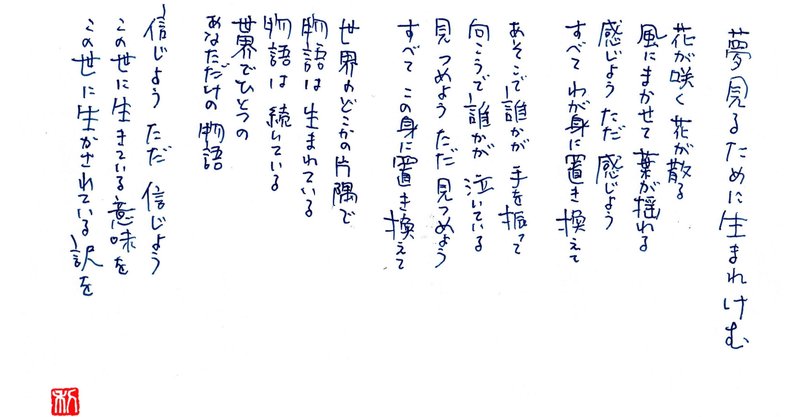 夢見るために生まれけむ
花が咲く 花が散る
風にまかせて 葉が揺れる
感じよう ただ 感じよう
すべて わが身に置き換えて
あそこで誰かが 手を振って
向こうで誰かが 泣いている
見つめよう ただ 見つめよう
すべて この身に置き換えて
世界のどこかの片隅で
物語は 生まれている
物語は 続いている
世界でひとつの
あなただけの 物語
信じよう ただ 信じよう
この世に生きている 意味を
この世に 生かされている 訳を